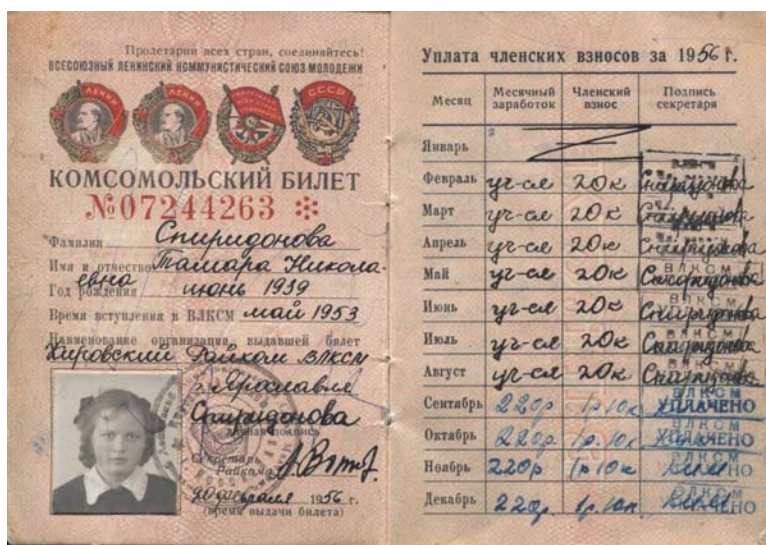 Пролетарии всех стран, соединяйтесь!
ВСЕСОЮЗНЫЙ ЛЕНИНСКИЙ КОММУНИСТИЧЕСКИЙ СОЮЗ МОЛОДЕЖИ
ЛЕНИН ЛЕНИН СССР
КОМСОМОЛЬСКИЙ БИЛЕТ
№07244263
Фамилия Спиридонова
Имя и отчество Тамара Никола-
евна
Год рождения июнь 1939
Время вступления в ВЛКСМ май 1953
Наименование организации, выдавшей билет
Кировский Райком ВЛКСМ
г. Ярославля
Спиридонова
Личная подпись
Секретарь
Райкома
20 февраля 1956 г.
(время выдачи билета)
Уплата членских взносов за 1956 г.
Месяц Месячный заработок Членский взнос Подпись секретаря
Январь
Февраль уч-ся 20к Спиридонова
Март уч-ся 20к Спиридонова
Апрель уч-ся 20к Спиридонова
Май уч-ся 20к Спиридонова
Июнь уч-ся 20к Спиридонова
Июль уч-ся 20к Спиридонова
Август уч-ся 20к Спиридонова
Сентябрь 220р 1р 10к ВЛКСМ УПЛАЧЕНО
Октябрь 220р. 1р. 10к ВЛКСМ УПЛАЧЕНО
Ноябрь 220р 1р 10к ВЛКСМ
Декабрь 220р. 1р. 10к ВЛКСМ